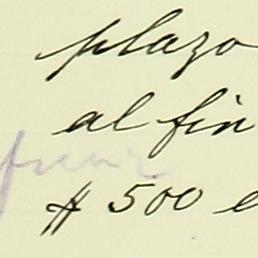 plazo
al fin
$ 500 e